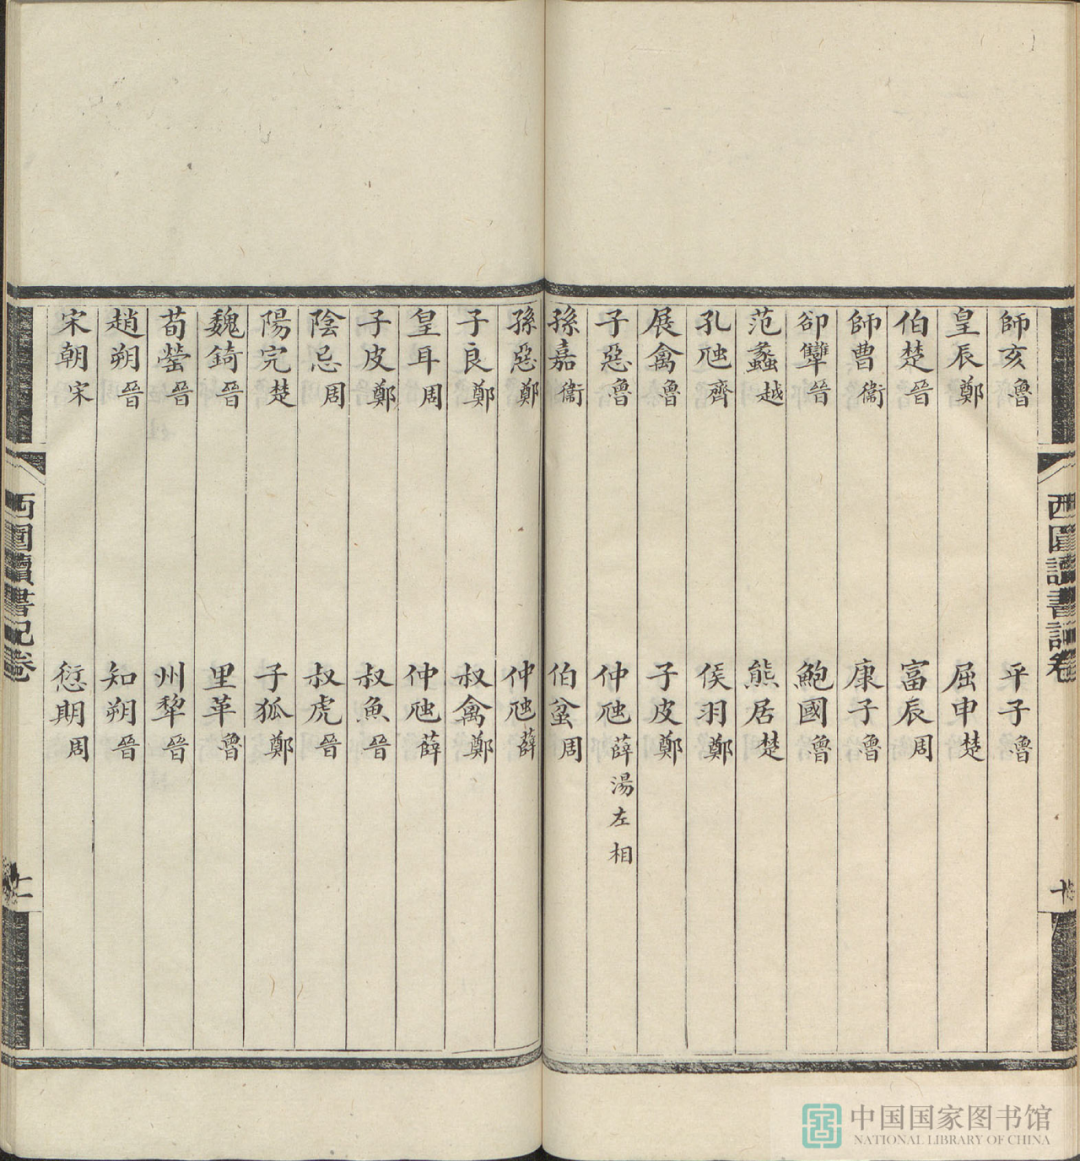 師亥魯　平子魯
皇辰鄭　屈申楚
伯楚晉　富辰周
師曹衞　康子魯
郤犫晉　鮑國魯
范蠡越　熊居楚
孔虺齊　侯羽鄭
展禽魯　子皮鄭
子惡魯　仲虺薛湯左相
孫嘉衞　伯蚠周
孫惡鄭　仲虺薛
子良鄭　叔禽鄭
皇耳周　仲虺薛
子皮鄭　叔魚晉
陰忌周　叔虎晉
陽完楚　子狐鄭
魏錡晉　里革魯
荀罃晉　州犂晉
趙朔晉　知朔晉
宋朝宋　愆期周
西圃讀書記卷
西圃讀書記卷
中国国家图书馆
NATIONAL LIBRARY OF CHINA